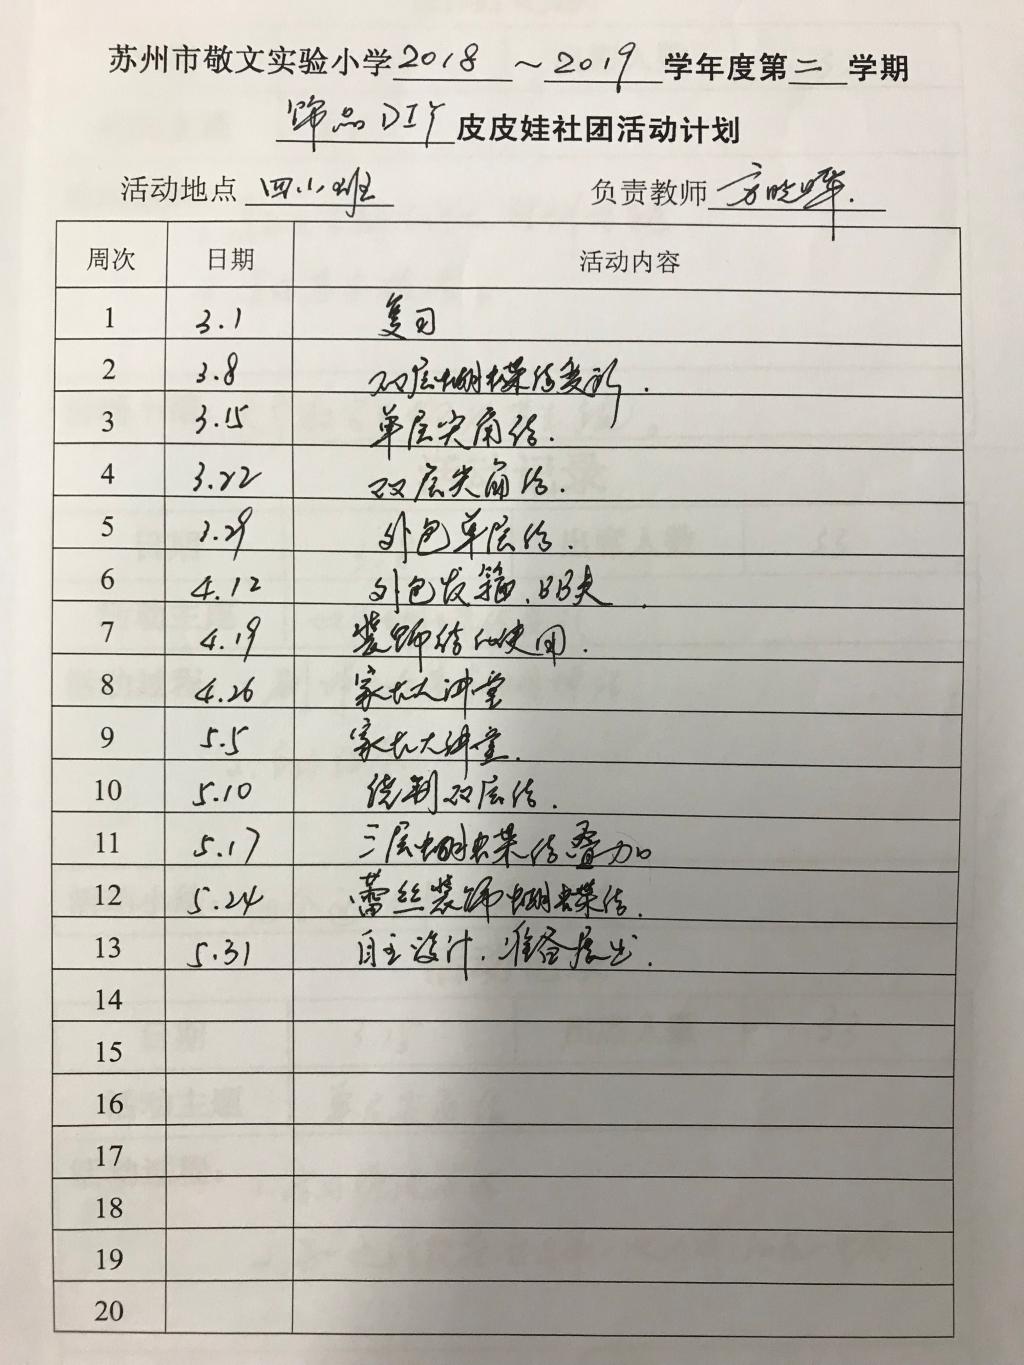 苏州市敬文实验小学2018～2019学年度第二学期
饰品DIY皮皮娃社团活动计划
活动地点 四小班 负责教师 方晓晖.
周次 日期 活动内容
1 3.1 复习
2 3.8 双层蝴蝶结变形.
3 3.15 单层尖角结.
4 3.22 双层尖角结.
5 3.29 外包单层结.
6 4.12 外包发箍、BB夹.
7 4.19 装饰结的使用.
8 4.26 家长大讲堂
9 5.5 家长大讲堂.
10 5.10 绕制双层结.
11 5.17 三层蝴蝶结叠加
12 5.24 蕾丝装饰蝴蝶结.
13 5.31 自主设计.准备展出.
14
15
16
17
18
19
20